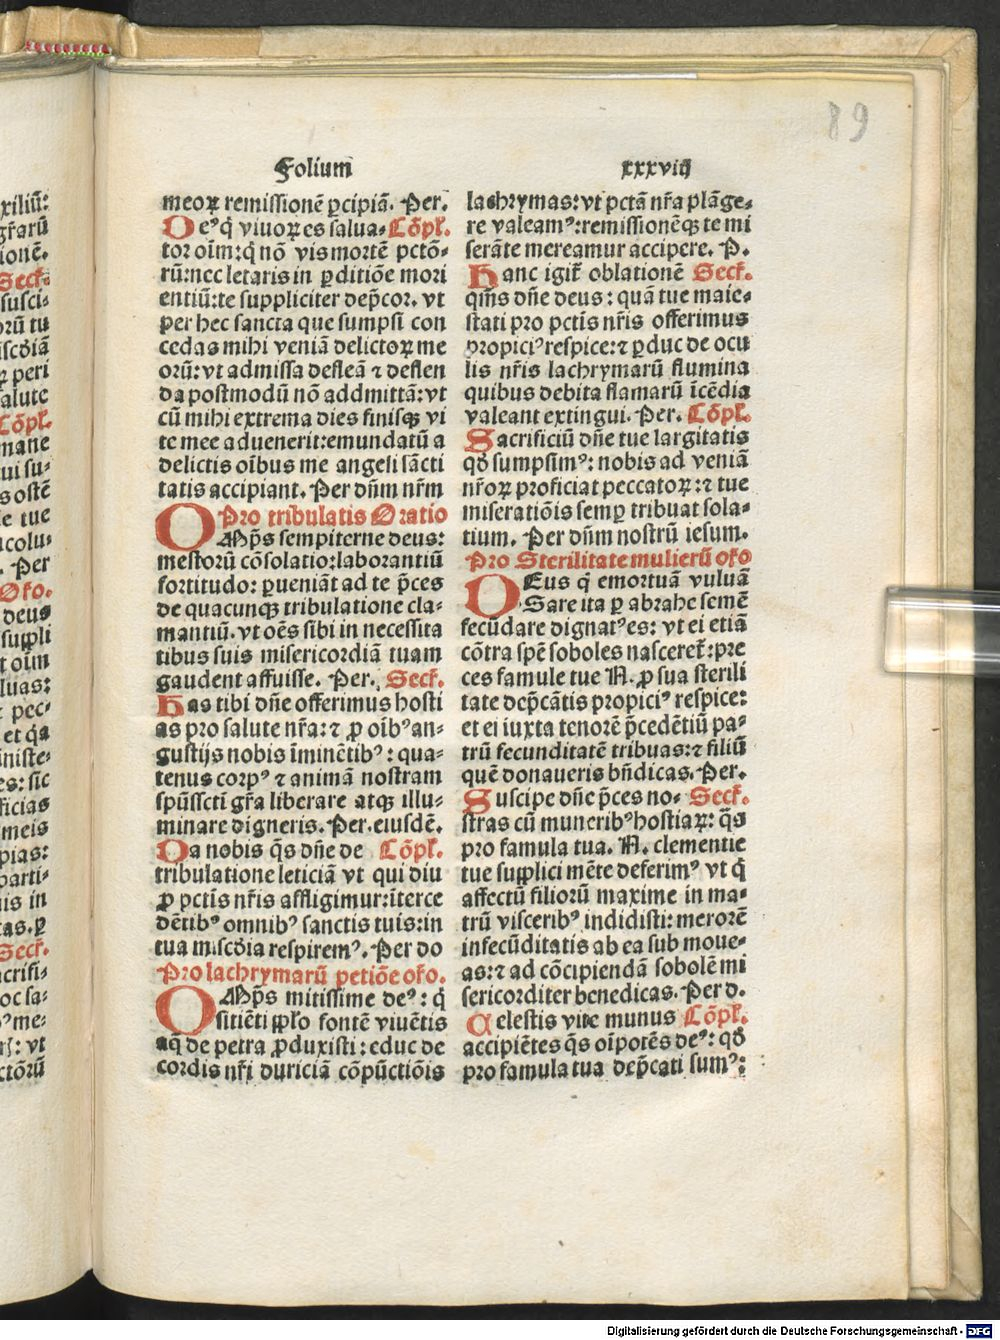 89
Folium xxxviij
meoꝝ remissionē ꝑcipiā. Per.
Deꝰ q̄ viuoꝝ es salua- Cōpl'.
tor oīm: q̄ nō vis mortē pctō-
rū: nec letaris in ꝑditiōe mori
entiū: te suppliciter dep̄cor. vt
per hec sancta que sumpsi con
cedas mihi veniā delictoꝝ me
orū: vt admissa defleā ⁊ deflen
da postmodū nō addmittā: vt
cū mihi extrema dies finisqꝫ vi
te mee aduenerit: emundatū a
delictis oībus me angeli sācti
tatis accipiant. Per dn̄m nr̄m
Pro tribulatis Oratio
OMp̄s sempiterne deus:
mestorū cōsolatio: laborantiū
fortitudo: ꝑueniāt ad te p̄ces
de quacunqꝫ tribulatione cla-
mantiū. vt oēs sibi in necessita
tibus suis misericordiā tuam
gaudent affuisse. Per. Secr̄.
Has tibi dn̄e offerimus hosti
as pro salute nr̄a: ⁊ ꝓ oībꝰ an-
gustijs nobis īminētibꝰ: qua-
tenus corpꝰ ⁊ animā nostram
spūssc̄ti gr̄a liberare atqꝫ illu-
minare digneris. Per. eiusdē.
Da nobis q̄s dn̄e de Cōpl'.
tribulatione leticiā vt qui diu
ꝓ pctīs nr̄is affligimur: īterce
dētibꝰ omnibꝰ sanctis tuis: in
tua miscd̄ia respiremꝰ. Per do
Pro lachrymarū petiōe or̄o.
OMp̄s mitissime deꝰ: q̄
sitiēti pp̄lo fontē viuētis
aq̄ de petra ꝓduxisti: educ de
cordis nr̄i duriciā cōpūctiōis
lachrymas: vt pctā nr̄a plāge-
re valeamꝰ: remissionēqꝫ te mi
serāte mereamur accipere. P.
Hanc igit̄ oblationē Secr̄.
qm̄s dn̄e deus: quā tue maie-
stati pro pctīs nr̄is offerimus
propiciꝰ respice: ⁊ ꝑduc de ocu
lis nr̄is lachrymarū flumina
quibus debita flamarū īcēdia
valeant extingui. Per. Cōpl'.
Sacrificiū dn̄e tue largitatis
qd̄ sumpsimꝰ: nobis ad veniā
nr̄oꝝ proficiat peccatoꝝ: ⁊ tue
miseratiōis semꝑ tribuat sola-
tium. Per dn̄m nostrū iesum.
Pro Sterilitate mulierū or̄o
OEus q̄ emortuā vuluā
Sare ita ꝑ abrahe semē
fecūdare dignatꝰ es: vt ei etiā
cōtra spē soboles nasceret̄: pre
ces famule tue N. ꝓ sua sterili
tate dep̄cātis propiciꝰ respice:
et ei iuxta tenorē p̄cedētiū pa-
trū fecunditatē tribuas: ⁊ filiū
quē donaueris bn̄dicas. Per.
Suscipe dn̄e p̄ces no- Secr̄.
stras cū muneribꝰ hostiaꝝ: q̄s
pro famula tua. N. clementie
tue supplici mēte deferimꝰ vt q̄
affectū filiorū maxime in ma-
trū visceribꝰ indidisti: merorē
infecūditatis ab ea sub moue-
as: ⁊ ad cōcipiendā sobolē mi
sericorditer benedicas. Per d.
Celestis vite munus Cōpl'.
accipiētes q̄s oīpotēs deꝰ: qd̄
pro famula tua dep̄cati sumꝰ:
Digitalisierung gefördert durch die Deutsche Forschungsgemeinschaft - DFG